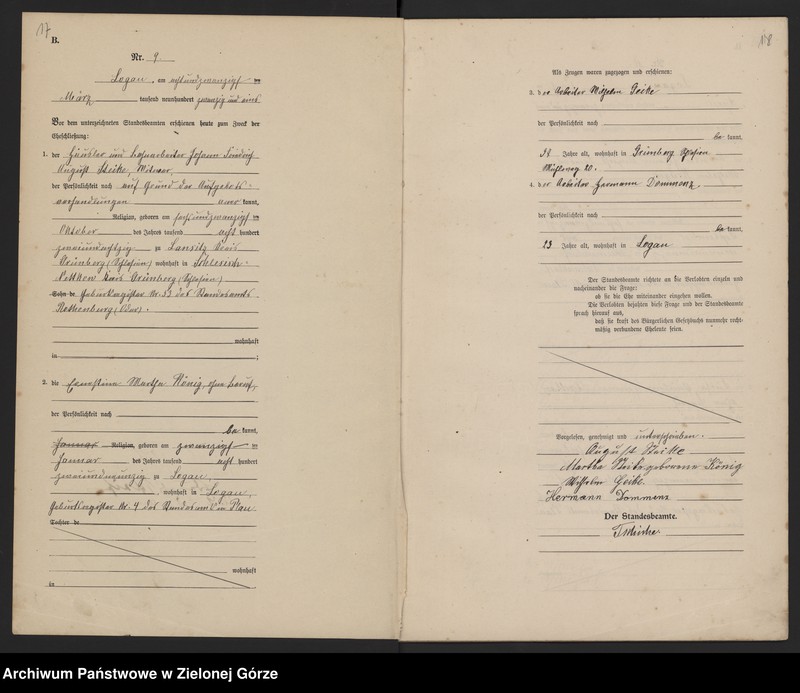 17
B.
Nr. 9.
Logau, am achtundzwanzigsten
März tausend neunhundert zwanzig und eins
Vor dem unterzeichneten Standesbeamten erschienen heute zum Zweck der
Eheschließung:
1. der Häusler und Johann
August Heike, Witwer,
der Persönlichkeit nach auf Grund der Aufgebots-
verhandlungen kannt,
Religion, geboren am
Oktober des Jahres tausend acht hundert
zweiundachtzig zu Lansitz Kreis
Grünberg (Schlesien) wohnhaft in Schlesisch-
Nettkow Kreis Grünberg (Schlesien)
Sohn de Geburtsregister Nr. 53 des Standesamts
Rothenburg (Oder).
wohnhaft
in ;
2. die Ernestine Martha König, ohne Beruf,
der Persönlichkeit nach
be kannt,
Januar Religion, geboren am zwanzigsten
Januar des Jahres tausend acht hundert
zweiundneunzig zu Logau,
, wohnhaft in Logau,
Geburtsregister Nr. 4 des Standesamts in Plau
Tochter de
wohnhaft
in
18
Als Zeugen waren zugezogen und erschienen:
3. der Arbeiter Wilhelm Geike
der Persönlichkeit nach
be kannt,
Jahre alt, wohnhaft in Grünberg Schlesien
Mühlweg 20.
4. der Arbeiter Hermann Dommenz
der Persönlichkeit nach
be kannt,
23 Jahre alt, wohnhaft in Logau
Der Standesbeamte richtete an die Verlobten einzeln und
nacheinander die Frage:
ob sie die Ehe miteinander eingehen wollen.
Die Verlobten bejahten diese Frage und der Standesbeamte
sprach hierauf aus,
daß sie kraft des Bürgerlichen Gesetzbuchs nunmehr recht-
mäßig verbundene Eheleute seien.
Vorgelesen, genehmigt und unterschrieben.
August Heike
Martha Heike geborene König
Wilhelm Geike
Hermann Dommenz
Der Standesbeamte.
Archiwum Państwowe w Zielonej Górze